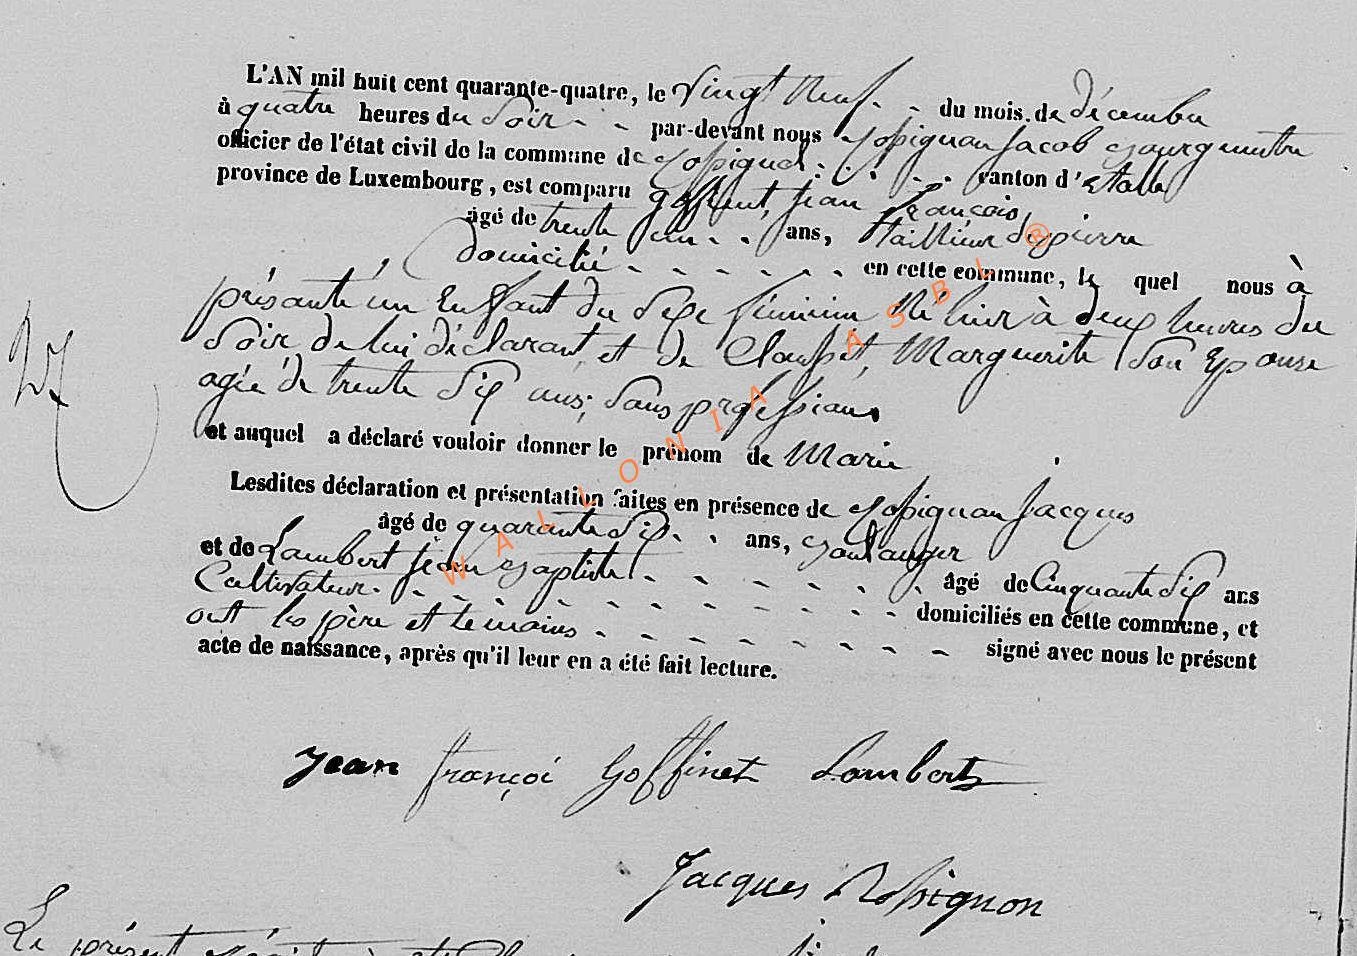 L'AN mil huit cent quarante-quatre, le vingt Neuf du mois de décembre
à quatre heures du Soir par-devant nous Rossignon Jacob Bourgmestre
officier de l'état civil de la commune de Rossignol canton d'Etalle
province de Luxembourg, est comparu Goffinet, Jean François,
âgé de trente ans, tailleur de pierre
domicilié en cette commune, le quel nous à
présanté un Enfant du Sexe féminin Né hier à deux heures du
Soir de lui déclarant et de Claus Marguerite Son Epouse
agée de trente Six ans, Sans profession
et auquel a déclaré vouloir donner le prénom de Marie
Lesdites déclaration et présentation faites en présence de Rossignon Jacques
âgé de quarante Six ans, Boulanger
et de Lambert Jean Baptiste âgé de Cinquante Six ans
Cultivateur domiciliés en cette commune, et
ont les père et témoins signé avec nous le présent
acte de naissance, après qu'il leur en a été fait lecture.
27
WALLONIA ASBL ®
Jean françoi Goffinet Lambert
Jacques Rossignon
Le présent